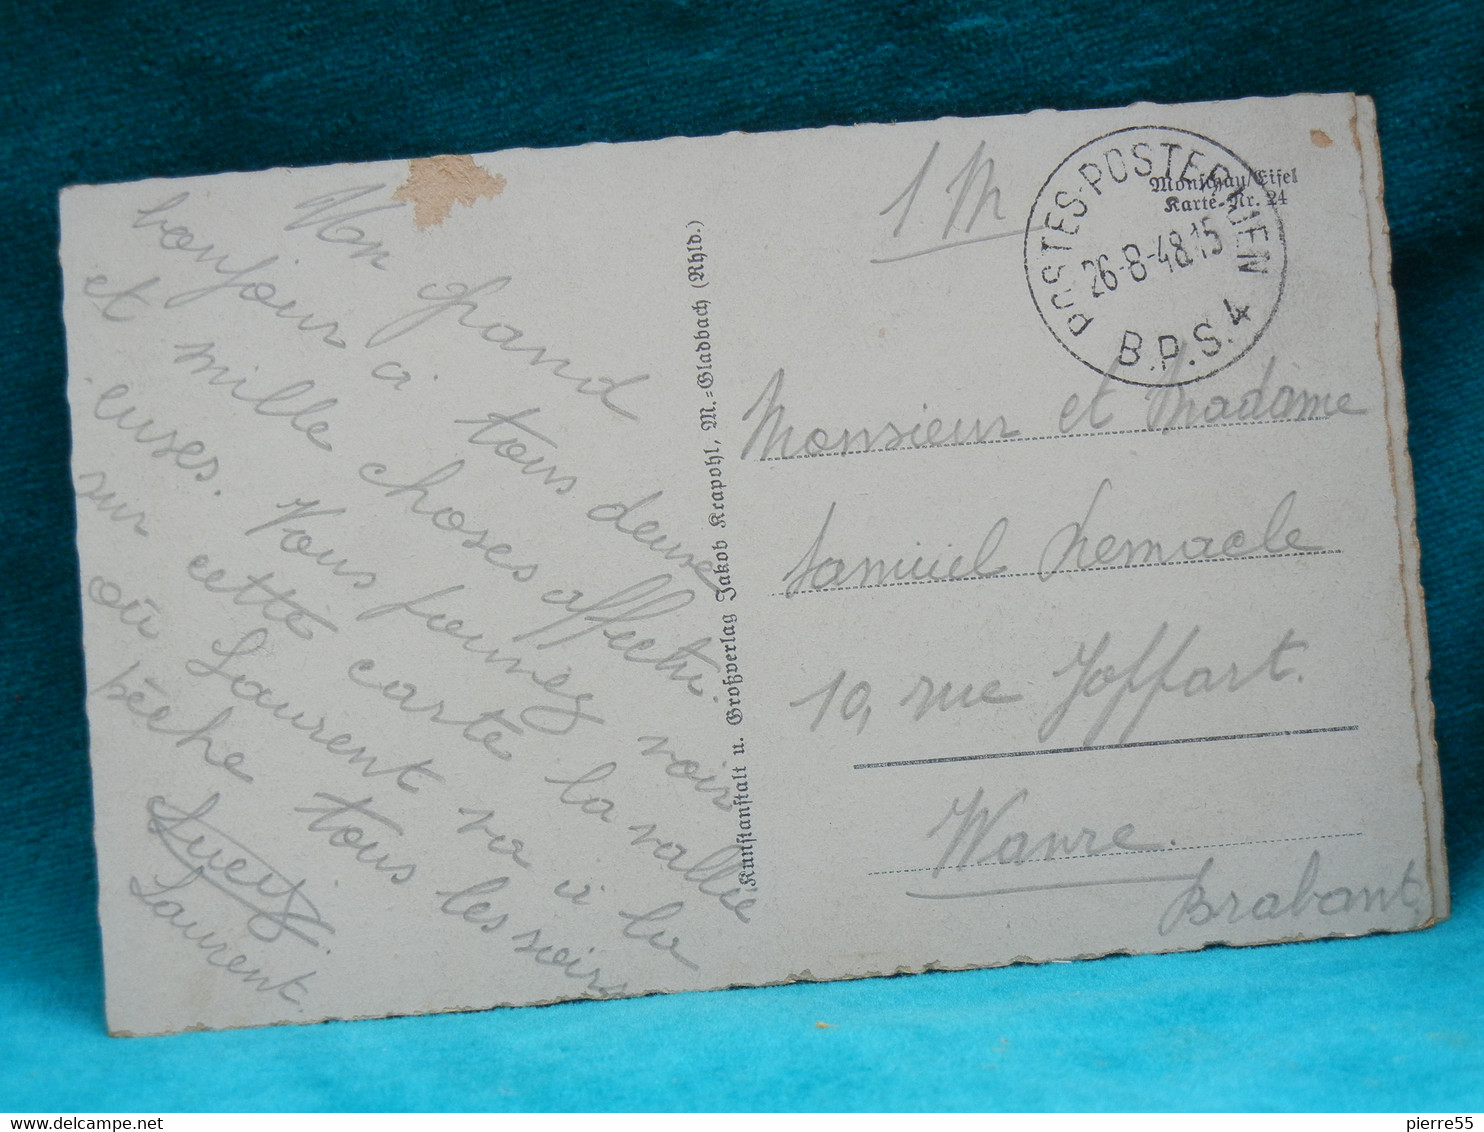 Mon grand
bonjour à tous deux
et mille choses affectu-
euses. Vous pouvez voir
sur cette carte la vallée
où Laurent va à la
pêche tous les soirs
Laurent
Kunstanstalt u. Großverlag Jakob Krapohl, M.=Gladbach (Rhld.)
1 M
Monschau/Eifel
Karte-Nr. 24
POSTES-POSTERIJEN
26-8-48.15
B.P.S. 4
Monsieur et Madame
Samuel Lemacle
10, rue Joffart.
Wavre.
Brabant
delcampe.net
pierre55